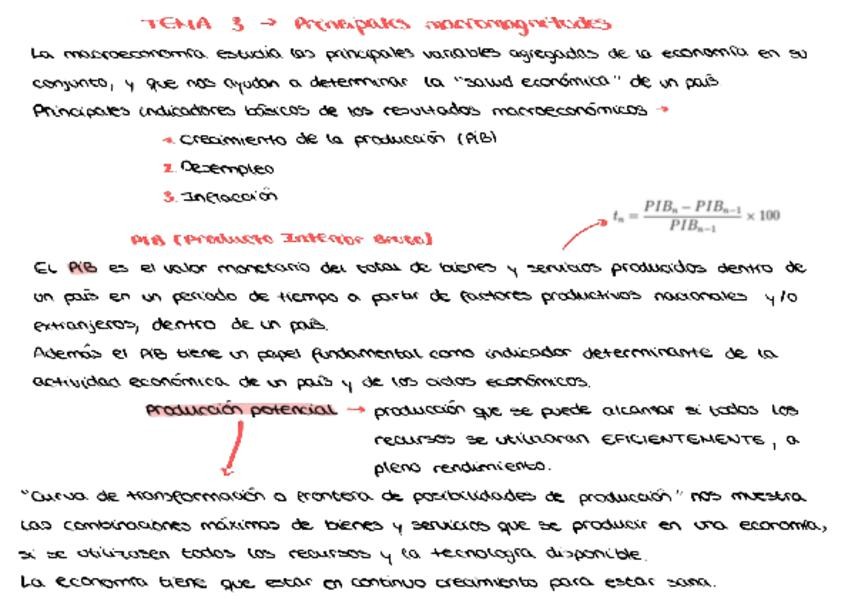 TEMA 3 → Principales macromagnitudes
La macroeconomía estudia las principales variables agregadas de la economía en su
conjunto, y que nos ayudan a determinar la "salud económica" de un país.
Principales indicadores básicos de los resultados macroeconómicos →
1. Crecimiento de la producción (PIB)
2. Desempleo
3. Inflacción
t_n = (PIB_n − PIB_{n−1}) / PIB_{n−1} × 100
PIB (Producto Interior Bruto)
El PIB es el valor monetario del total de bienes y servicios producidos dentro de
un país en un periodo de tiempo a partir de factores productivos nacionales y/o
extranjeros, dentro de un país.
Además el PIB tiene un papel fundamental como indicador determinante de la
actividad económica de un país y de los ciclos económicos.
Producción potencial → producción que se puede alcanzar si todos los
recursos se utilizaran EFICIENTEMENTE, a
pleno rendimiento.
"Curva de transformación o frontera de posibilidades de producción" nos muestra
las combinaciones máximas de bienes y servicios que se producir en una economía,
si se utilizasen todos los recursos y la tecnología disponible.
La economía tiene que estar en continuo crecimiento para estar sana.